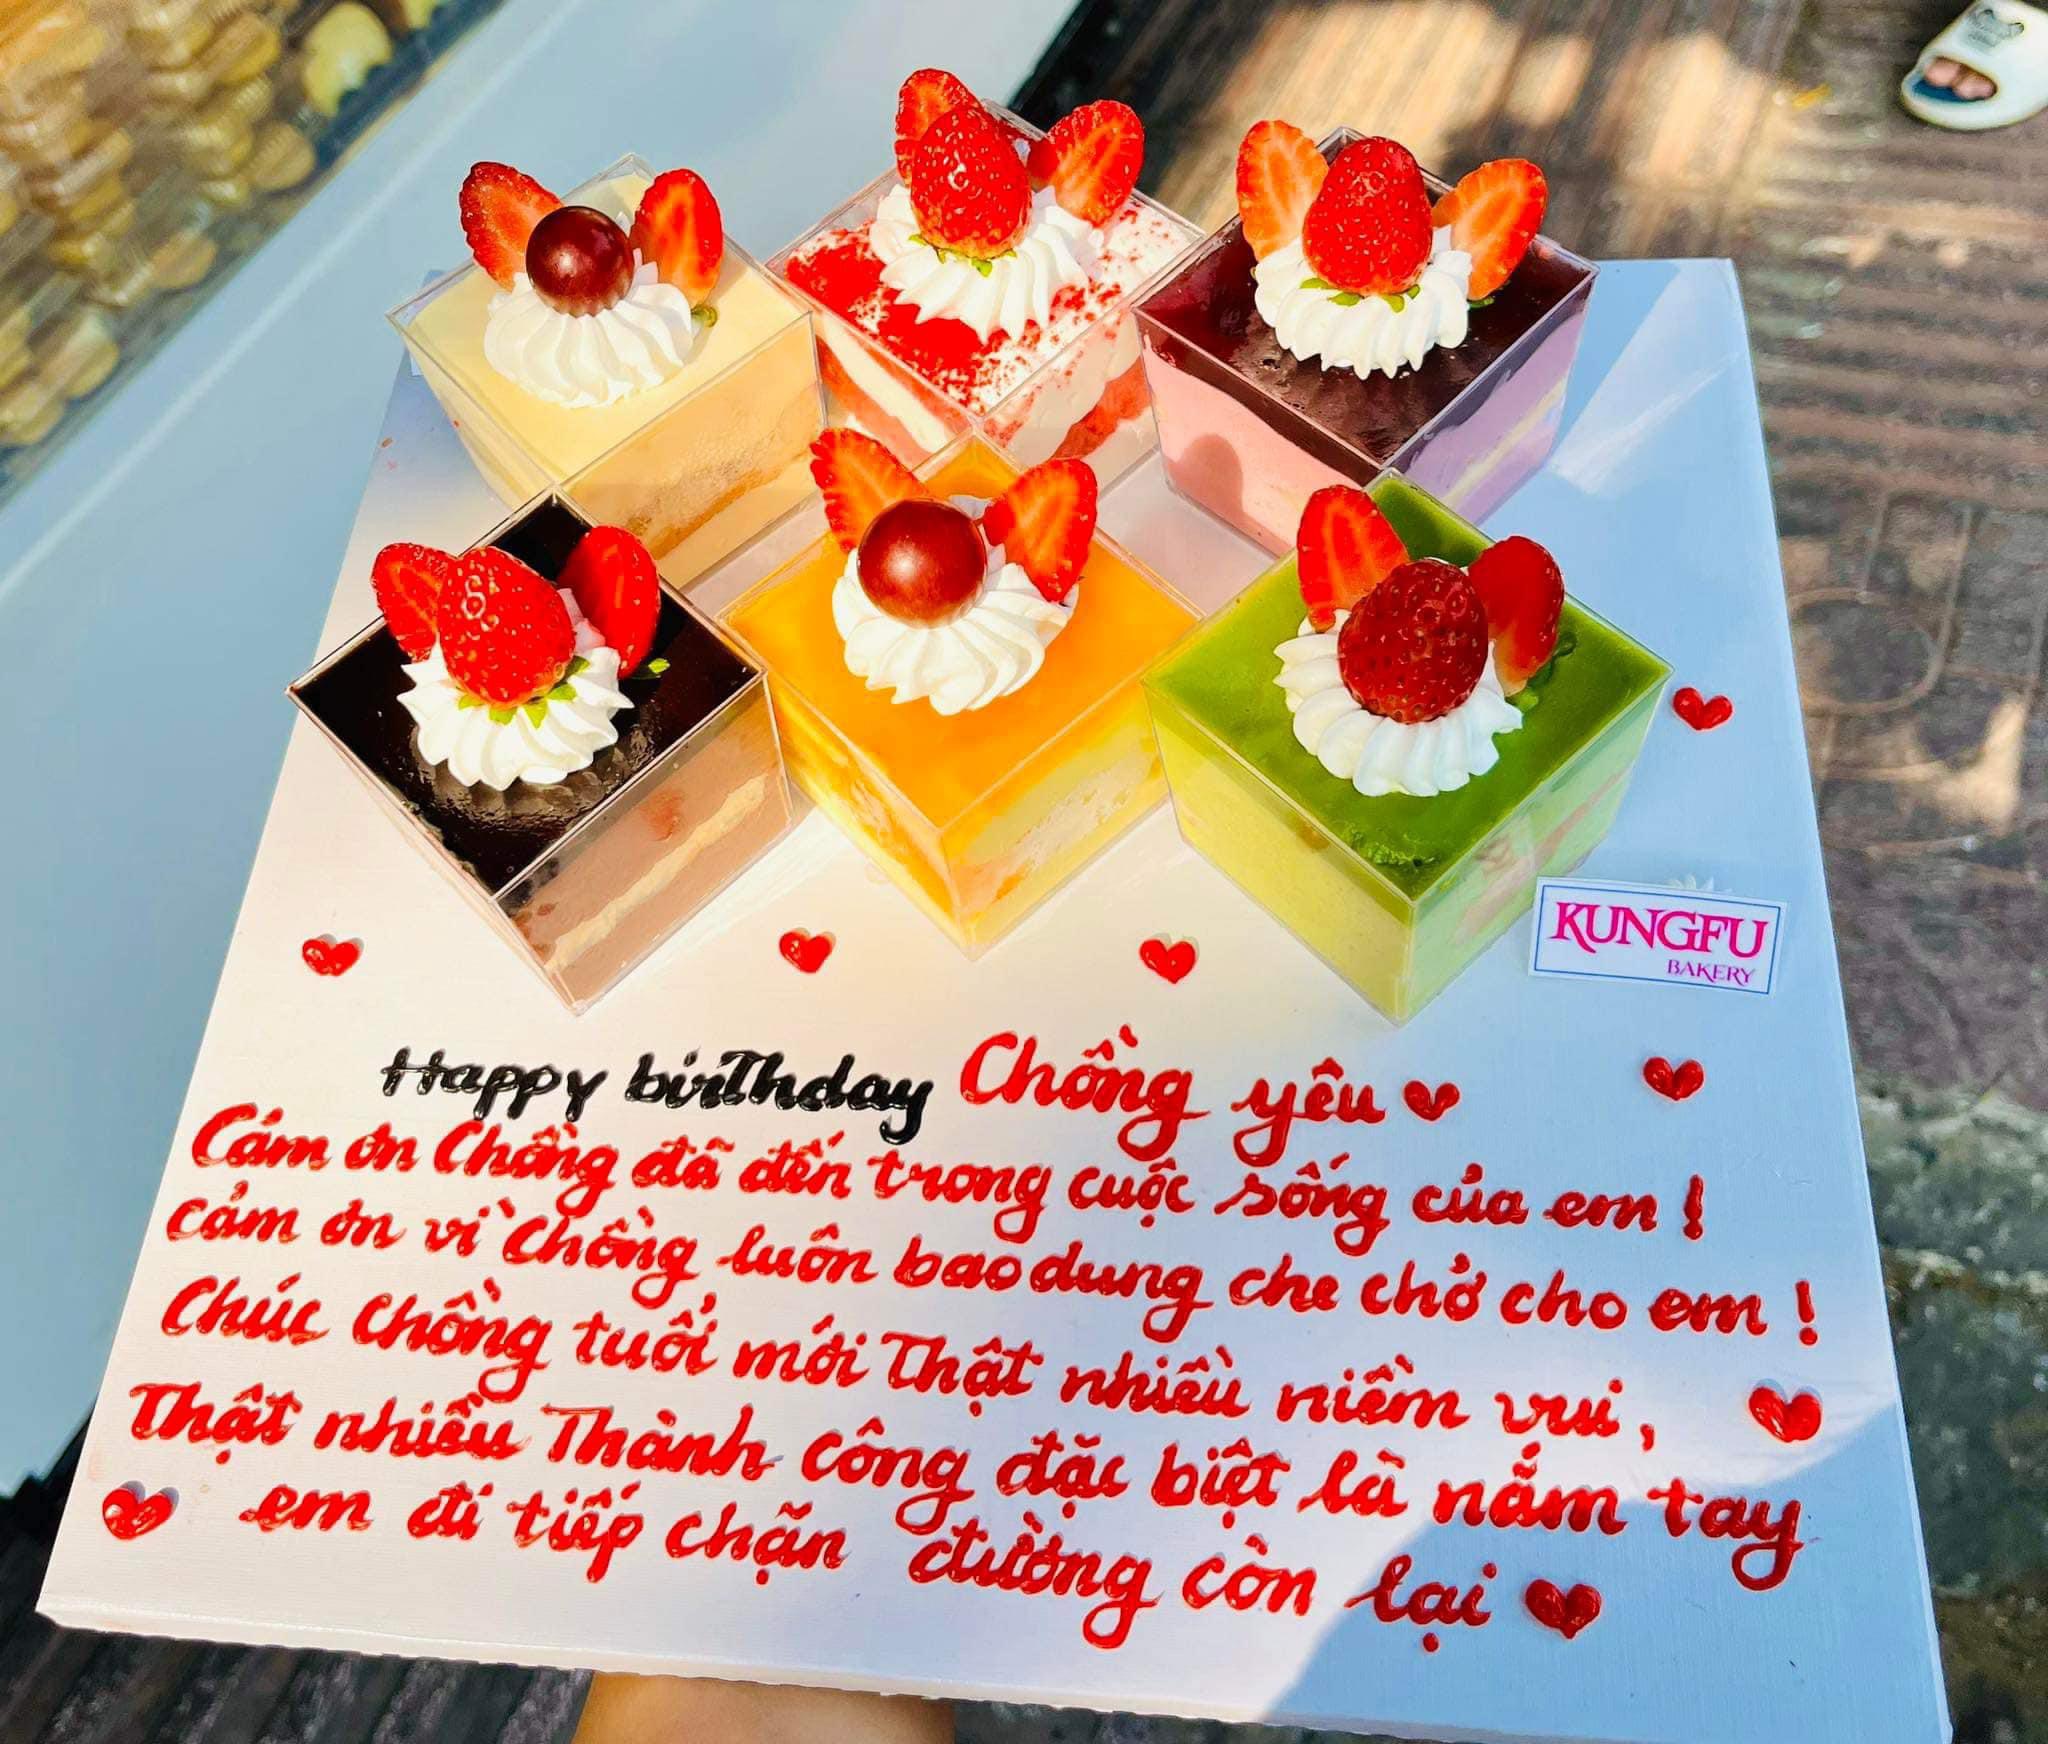 KUNGFU
BAKERY
Happy birthday Chồng yêu
Cám ơn Chồng đã đến trong cuộc sống của em!
Cảm ơn vì Chồng luôn bao dung che chở cho em!
Chúc Chồng tuổi mới Thật nhiều niềm vui,
Thật nhiều Thành công đặc biệt là nắm tay
em đi tiếp chặn đường còn lại